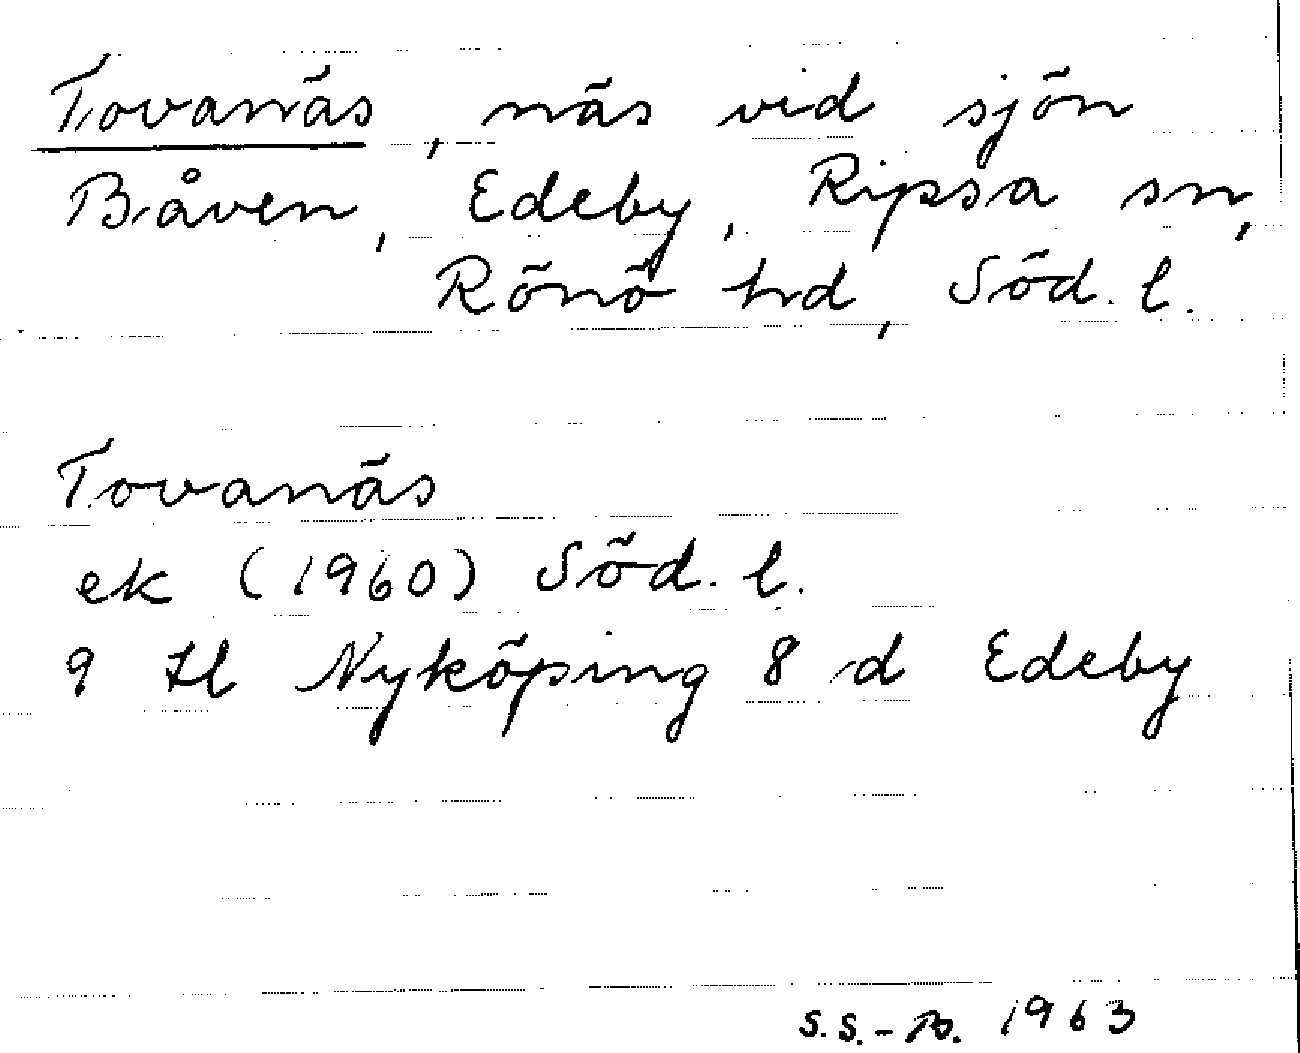 Tovanäs, näs vid sjön
Båven, Edeby, Ripsa sn,
Rönö hd, Söd. l.
Tovanäs
ek (1960) Söd. l.
9 Hl Nyköping 8 d Edeby
S.S.-B. 1963